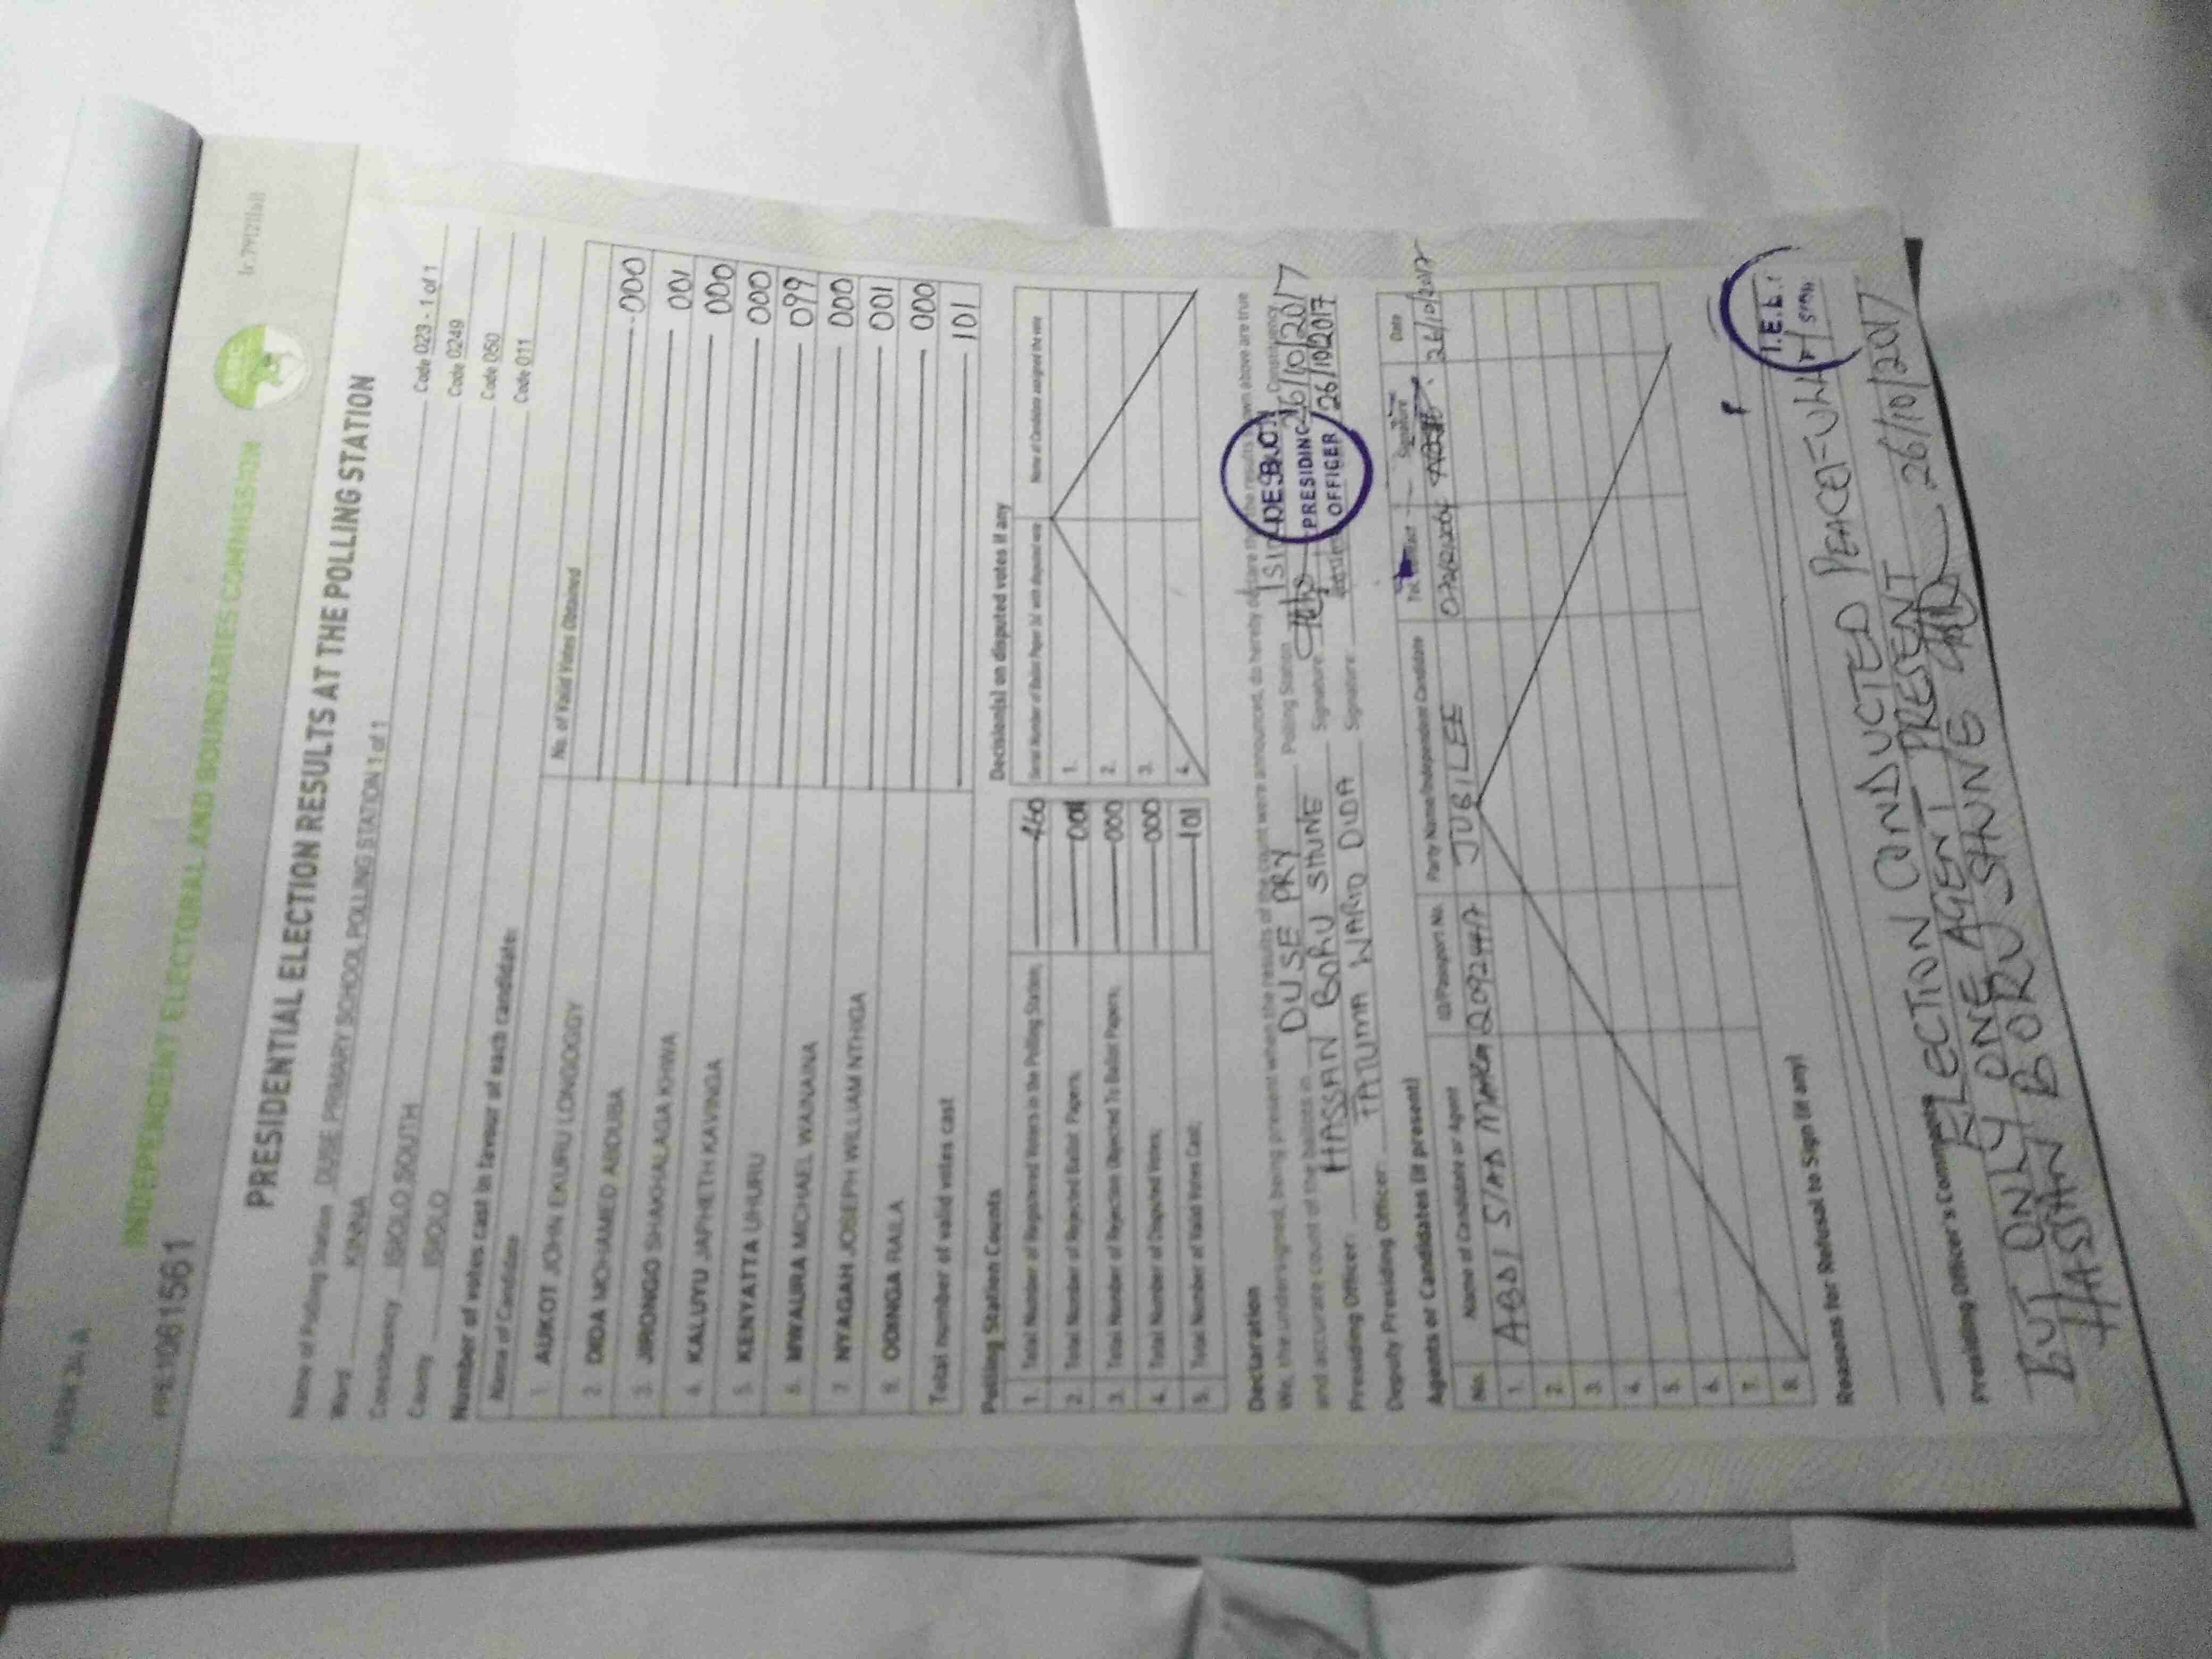 FORM 34 A
INDEPENDENT ELECTORAL AND BOUNDARIES COMMISSION
PRE1061561
PRESIDENTIAL ELECTION RESULTS AT THE POLLING STATION
Name of Polling Station DUSE PRIMARY SCHOOL POLLING STATION 1 of 1 Code 023 - 1 of 1
Ward KINNA Code 0249
Constituency ISIOLO SOUTH Code 050
County ISIOLO Code 011
Number of votes cast in favour of each candidate:
Name of Candidate No. of Valid Votes Obtained
1. AUKOT JOHN EKURU LONGOGGY 000
2. DIDA MOHAMED ABDUBA 001
3. JIRONGO SHAKHALAGA KHWA 000
4. KALUYU JAPHETH KAVINGA 000
5. KENYATTA UHURU 099
6. MWAURA MICHAEL WAINAINA 000
7. NYAGAH JOSEPH WILLIAM NTHIGA 001
8. ODINGA RAILA 000
Total number of valid votes cast 101
Polling Station Counts
1. Total Number of Registered Voters in the Polling Station; 460
2. Total Number of Rejected Ballot Papers;
3. Total Number of Rejection Objected To Ballot Papers; 000
4. Total Number of Disputed Votes; 000
5. Total Number of Valid Votes Cast; 101
Decision(s) on disputed votes if any
Serial Number of Ballot Paper (s) with disputed vote Name of Candidate assigned the vote
1.
2.
3.
4.
Declaration
We, the undersigned, being present when the results of the count were announced, do hereby declare the results shown above are true
and accurate count of the ballots in DUSE PRY Polling Station Constituency
Presiding Officer: HASSAN BORU SHUNE Signature: 26/10/2017
Deputy Presiding Officer: FATUMA WARIO DIDA Signature: 26/10/2017
PRESIDING
OFFICER
Agents or Candidates (if present)
No. Name of Candidate or Agent ID/Passport No. Party Name/Independent Candidate Tel. Contact Signature Date
1. ABDI SIAD JUBILEE 26/10/2017
2.
3.
4.
5.
6.
7.
8.
Reasons for Refusal to Sign (if any)
Presiding Officer's Comments
ELECTION CONDUCTED PEACEFULLY
BUT ONLY ONE AGENT PRESENT
HASSAN BORU SHUNE 26/10/2017
I.E.B.C